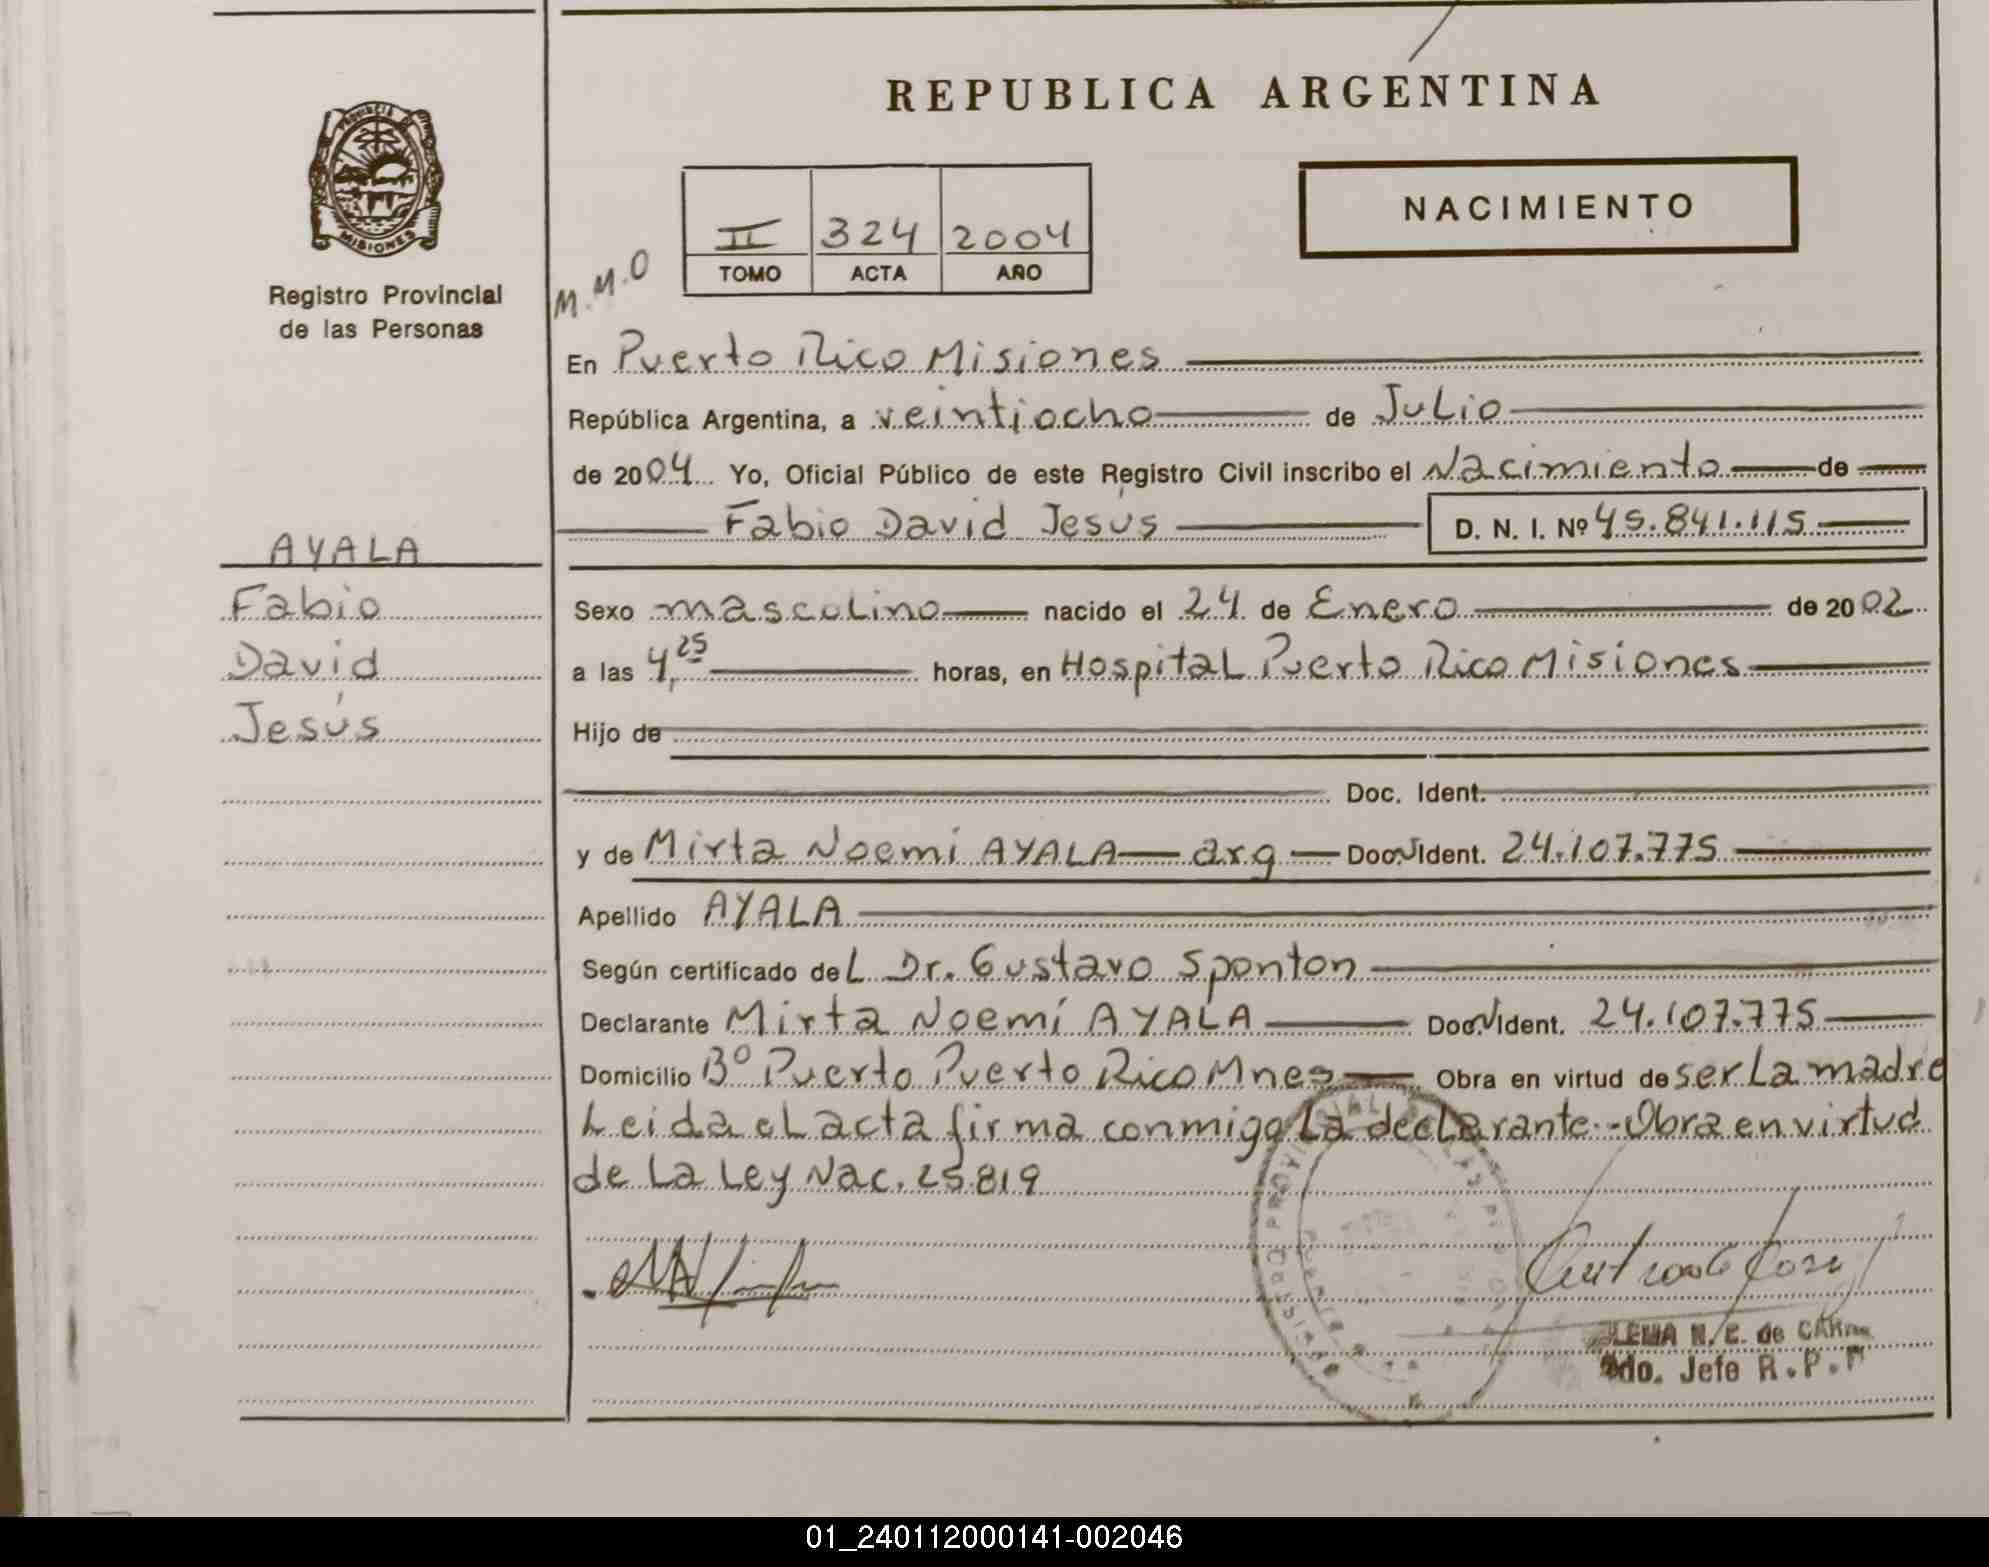 REPUBLICA ARGENTINA
PROVINCIA DE
MISIONES
Registro Provincial
de las Personas
NACIMIENTO
II 324 2004
TOMO ACTA AÑO
M.M.O
En Puerto Rico Misiones
República Argentina, a veintiocho de Julio
de 2004 Yo, Oficial Público de este Registro Civil inscribo el Nacimiento de
Fabio David Jesús D. N. I. Nº 45.841.115
AYALA
Fabio
David
Jesús
Sexo masculino nacido el 24 de Enero de 2002
a las 4,25 horas, en Hospital Puerto Rico Misiones
Hijo de
Doc. Ident.
y de Mirta Noemí AYALA arg Doc. Ident. 24.107.775
Apellido AYALA
Según certificado del Dr. Gustavo Sponton
Declarante Mirta Noemí AYALA Doc. Ident. 24.107.775
Domicilio Bº Puerto Puerto Rico Mnes Obra en virtud de ser la madre
Leida el acta firma conmigo la declarante.-Obra en virtud
de la Ley Nac. 25.819
N. C. de
Jefe R.P.
01_240112000141-002046